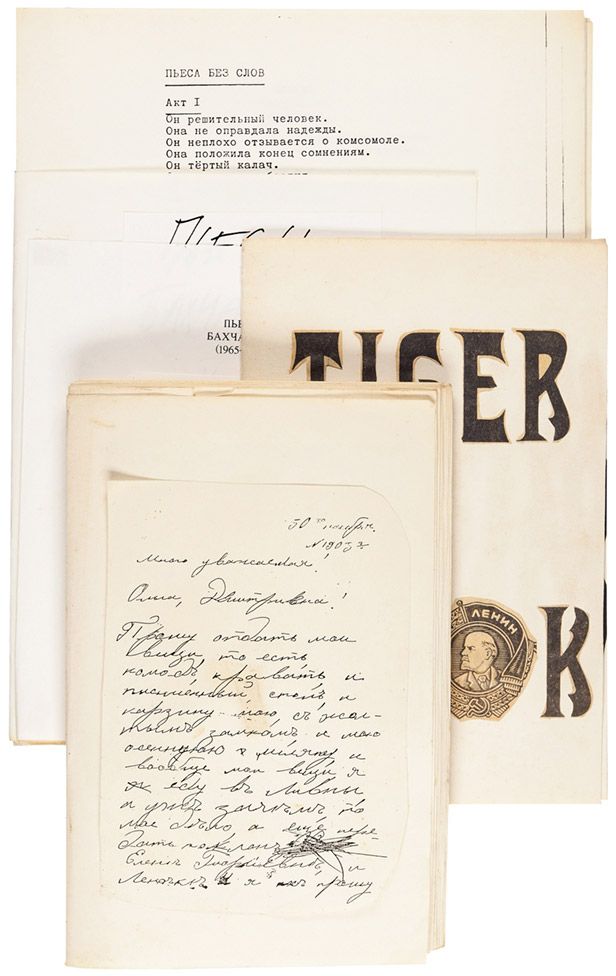 ПЬЕСА БЕЗ СЛОВ
Акт I
Он решительный человек.
Она не оправдала надежды.
Он неплохо отзывается о комсомоле.
Она положила конец сомнениям.
Он тёртый калач.
ПЬЕ
БАХЧА
(1965-
TIGER
ЛЕНИН
OK
30го ноября.
много уважаемая!
Ольга, Дмитрівна!
Прошу отдать мои
вѣщи, то есть
комодъ, кравать и
письменный столъ и
карзину мою съ жол-
тымъ замкомъ и мою
осеннюю шляпу и
вообще мои вѣщи я
ѣду въ Ливны
а
мое дѣло а ещё пере-
дать поклонъ
Еленѣ и
и я ихъ прошу